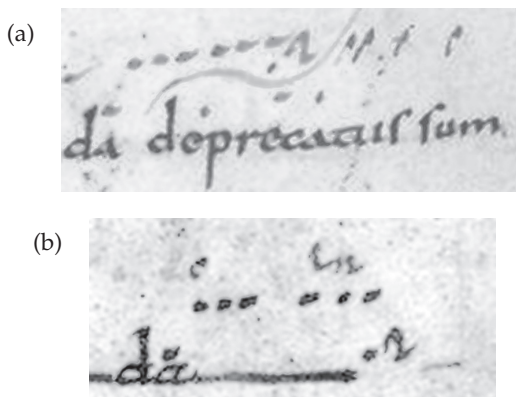 (a)
da deprecatus sum
(b)
da